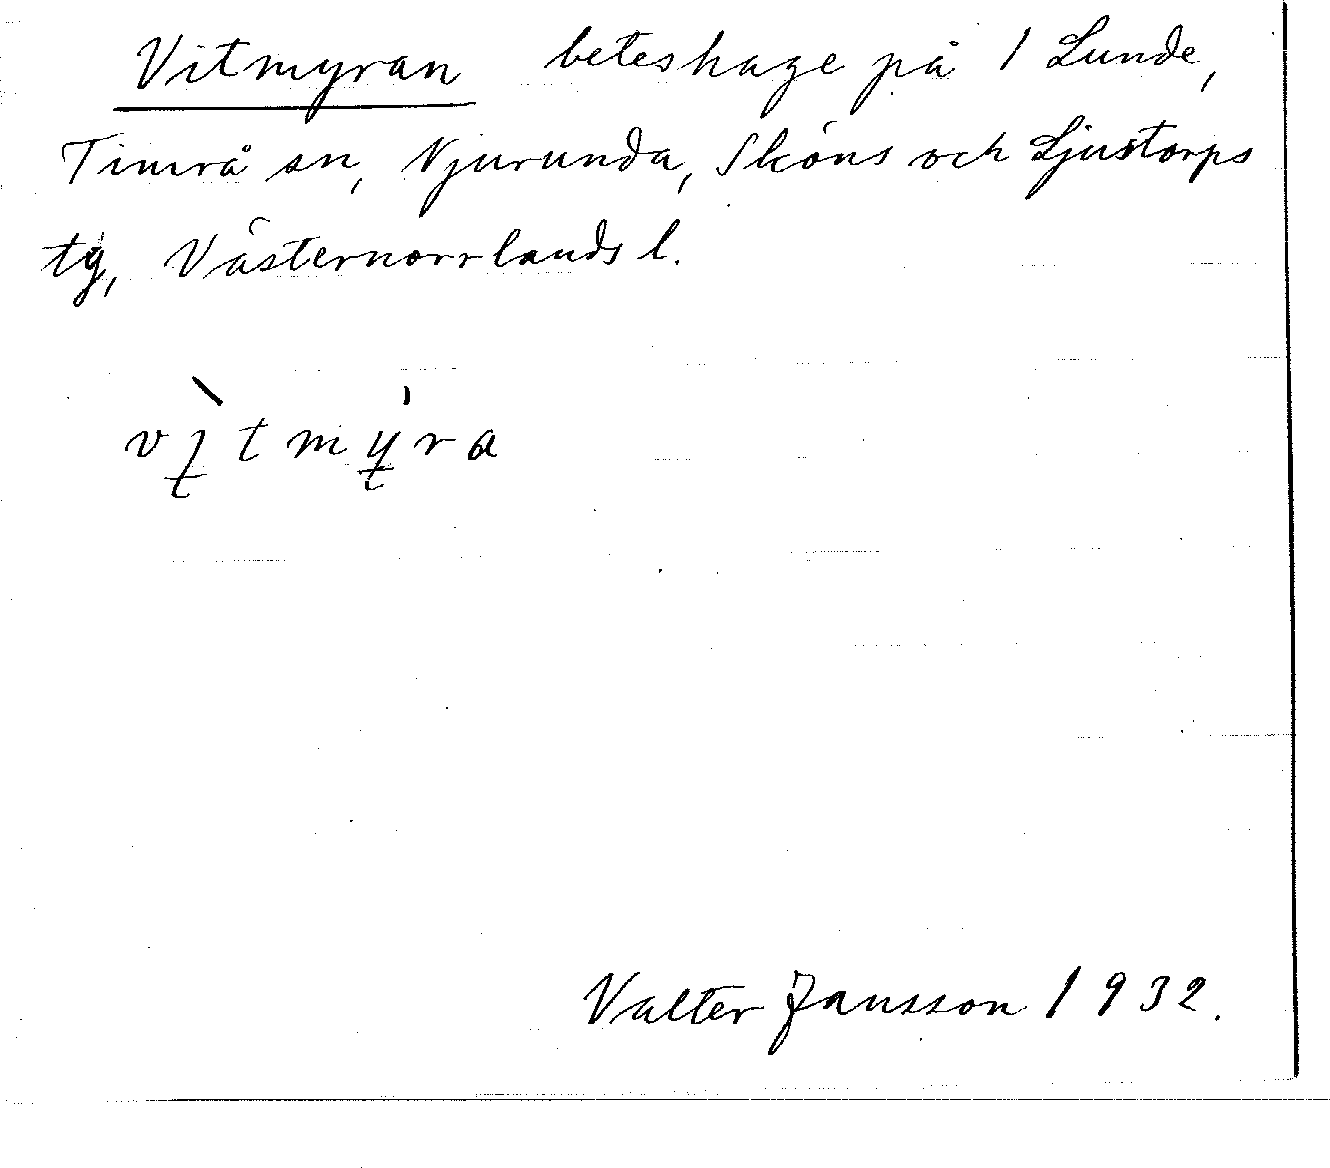 Vitmyran beteshage på 1 Lunde,
Timrå sn, Njurunda, Sköns och Ljustorps
tg, Västernorrlands l.
vı̀tmýra
Valter Jansson 1932.